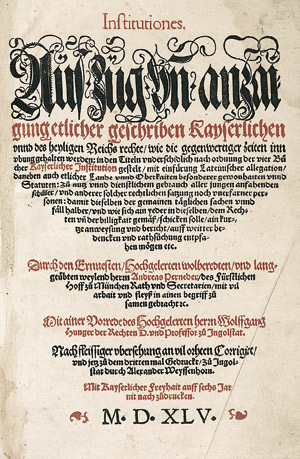 Institutiones.
Auszug vñ anzai
gung etlicher geschriben Kayserlichen
vnnd des heyligen Reichs rechte/ wie die gegenwertiger zeiten inn
übung gehalten werden: in den Titeln vnderschidlich nach ordnung der vier Bü
cher Kayserlicher Institution gestelt/ mit einfürung Lateinischer allegation/
daneben auch etlicher Lande vnnd Oberkaiten besonderer gewonhaiten vnnd
Statuten: Zů nutz vnnd dienstlichem gebrauch aller jungen anfahenden
schüler/ vnd anderer solcher rechtlichen satzung noch vnerfarner per-
sonen: damit dieselben der gemainen täglichen sachen vnnd
fäll halber/ vnd wie sich ain yeder in dieselben/ dem Rech-
ten vñ der billigkait gemäß/ schicken solle/ ain kur-
tze anweysung vnd bericht/ auff weitter be-
dencken vnd rathsůchung empfa-
hen mögen etc.
Durch den Ernuesten/ Hochgelerten wolberedten/ vnd lang-
geübten weylend herrn Andreas Perneder/ des Fürstlichen
Hoff zů München Rath vnd Secretarien/ mit vil
arbait vnd fleyß in ainen begriff zů
samen gebracht etc.
Mit ainer Vorrede des Hochgelerten herrn Wolffgang
Hunger der Rechten D. vnd Professor zů Jngolstat.
Nach fleissiger übersehung an vil orhten Corrigirt/
vnd jetz zů dem dritten mal Gedruckt/ Zů Jngol-
stat durch Alexander Weyssenhorn.
Mit Kayserlicher Freyhait auff sechs Jar
nit nach zůdrucken.
M. D. XLV.